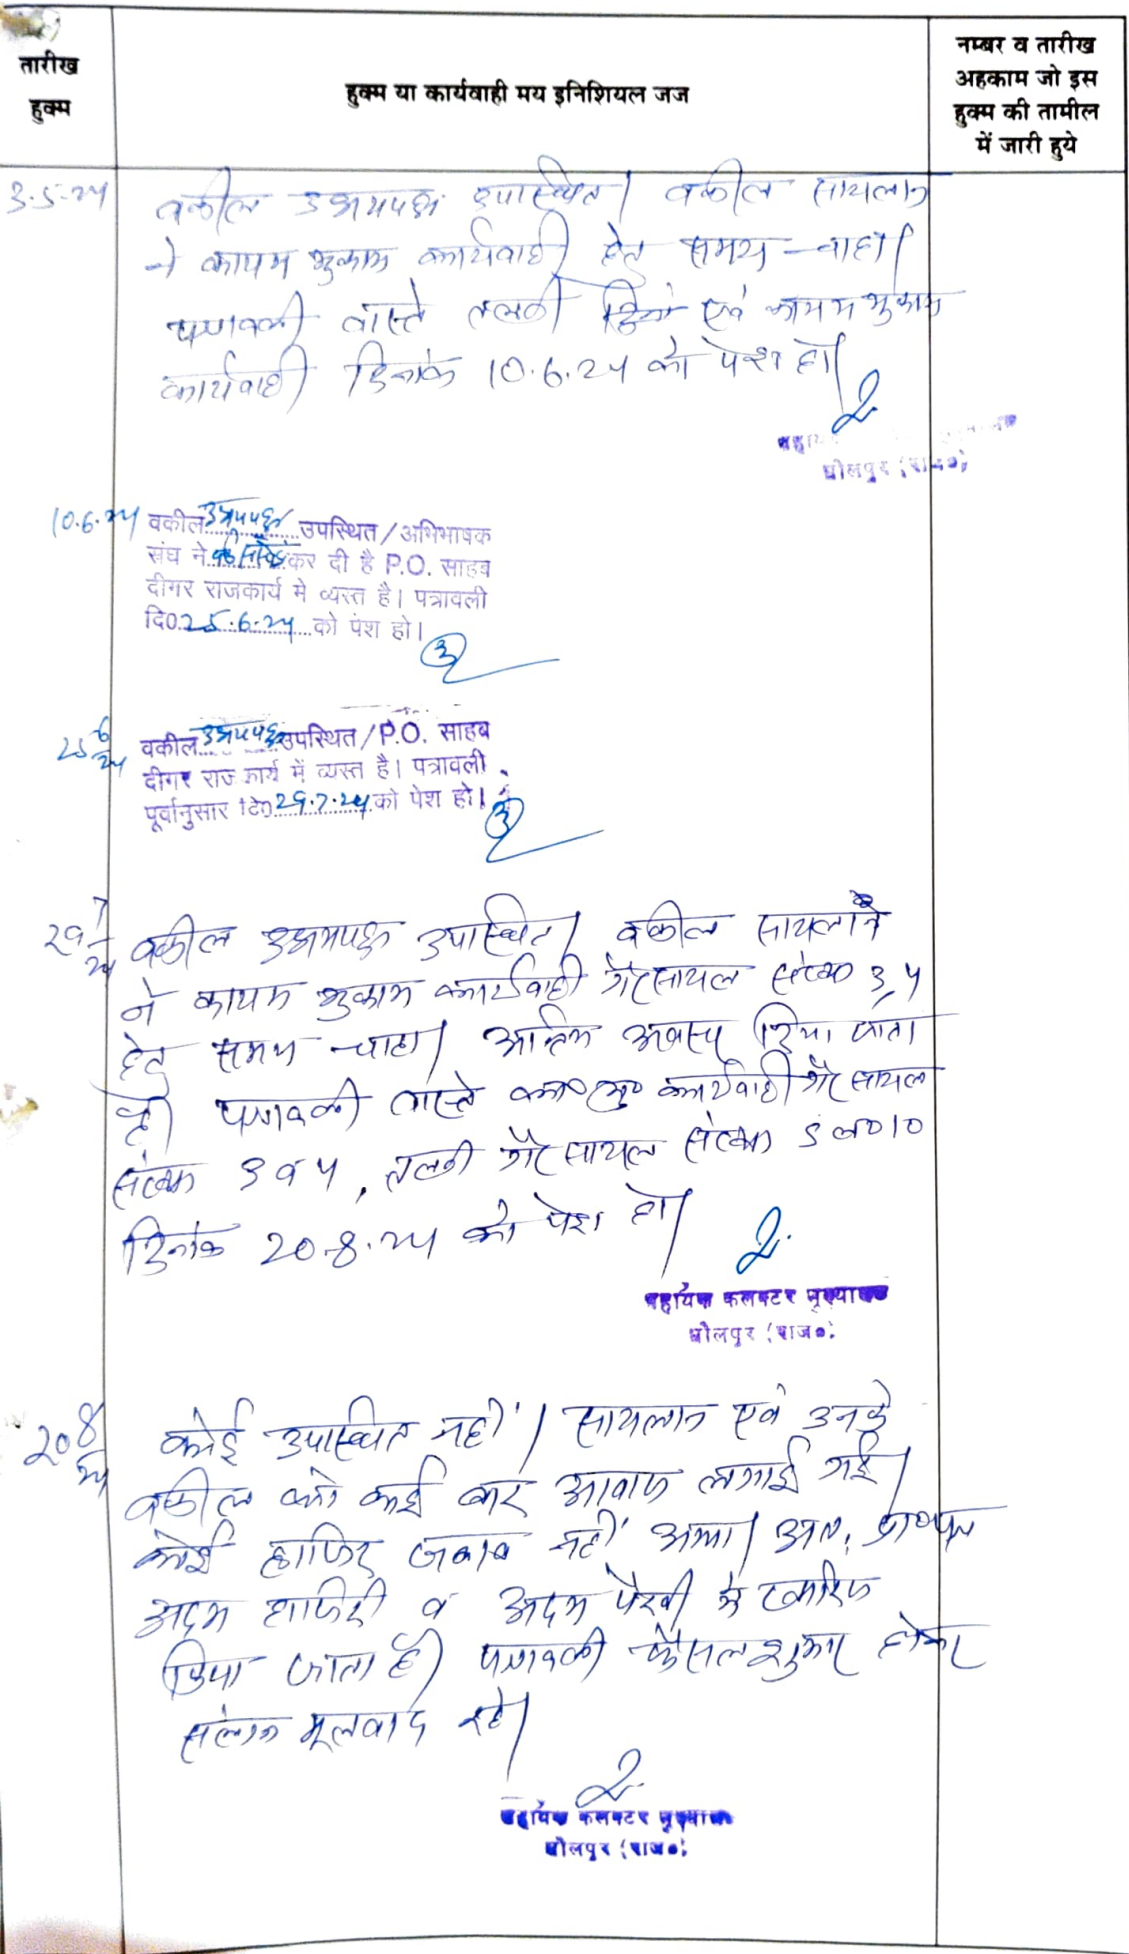 तारीख
हुक्म
हुक्म या कार्यवाही मय इनिशियल जज
नम्बर व तारीख
अहकाम जो इस
हुक्म की तामील
में जारी हुये
3.5.24
वकील उभयपक्ष उपस्थित। वकील सायलान
ने कायम मुकाम कार्यवाही हेतु समय चाहा।
पत्रावली वास्ते तलबी एवं कायम मुकाम
कार्यवाही दिनांक 10.6.24 को पेश हो।
धौलपुर (राज०)
10.6.24 वकील उभयपक्ष उपस्थित/अभिभाषक
संघ ने कर दी है P.O. साहब
दीगर राजकार्य मे व्यस्त है। पत्रावली
दि0 25.6.24 को पेश हो।
25 6/24 वकील उभयपक्ष उपस्थित/P.O. साहब
दीगर राज कार्य में व्यस्त है। पत्रावली
पूर्वानुसार दि0 29.7.24 को पेश हो।
29 7/24 वकील उभयपक्ष उपस्थित। वकील सायलान
ने कायम मुकाम कार्यवाही गैरसायल संख्या 3,4
हेतु समय चाहा। अन्तिम अवसर दिया जाता
है। पत्रावली वास्ते का० मु० कार्यवाही गैरसायल
संख्या 3 व 4, तलबी गैरसायल संख्या 5 ल० 10
दिनांक 20.8.24 को पेश हो।
सहायक कलक्टर मुख्यालय
धौलपुर (राज०)
20 8/24 कोई उपस्थित नहीं। सायलान एवं उनके
वकील को कई बार आवाज लगाई गई।
कोई हाजिर जवाब नहीं आया। अतः प्रा०पत्र
अदम हाजिरी व अदम पैरवी में खारिज
किया जाता है। पत्रावली फैसलशुमार होकर
संलग्न मूलवाद रहे।
सहायक कलक्टर मुख्यालय
धौलपुर (राज०)